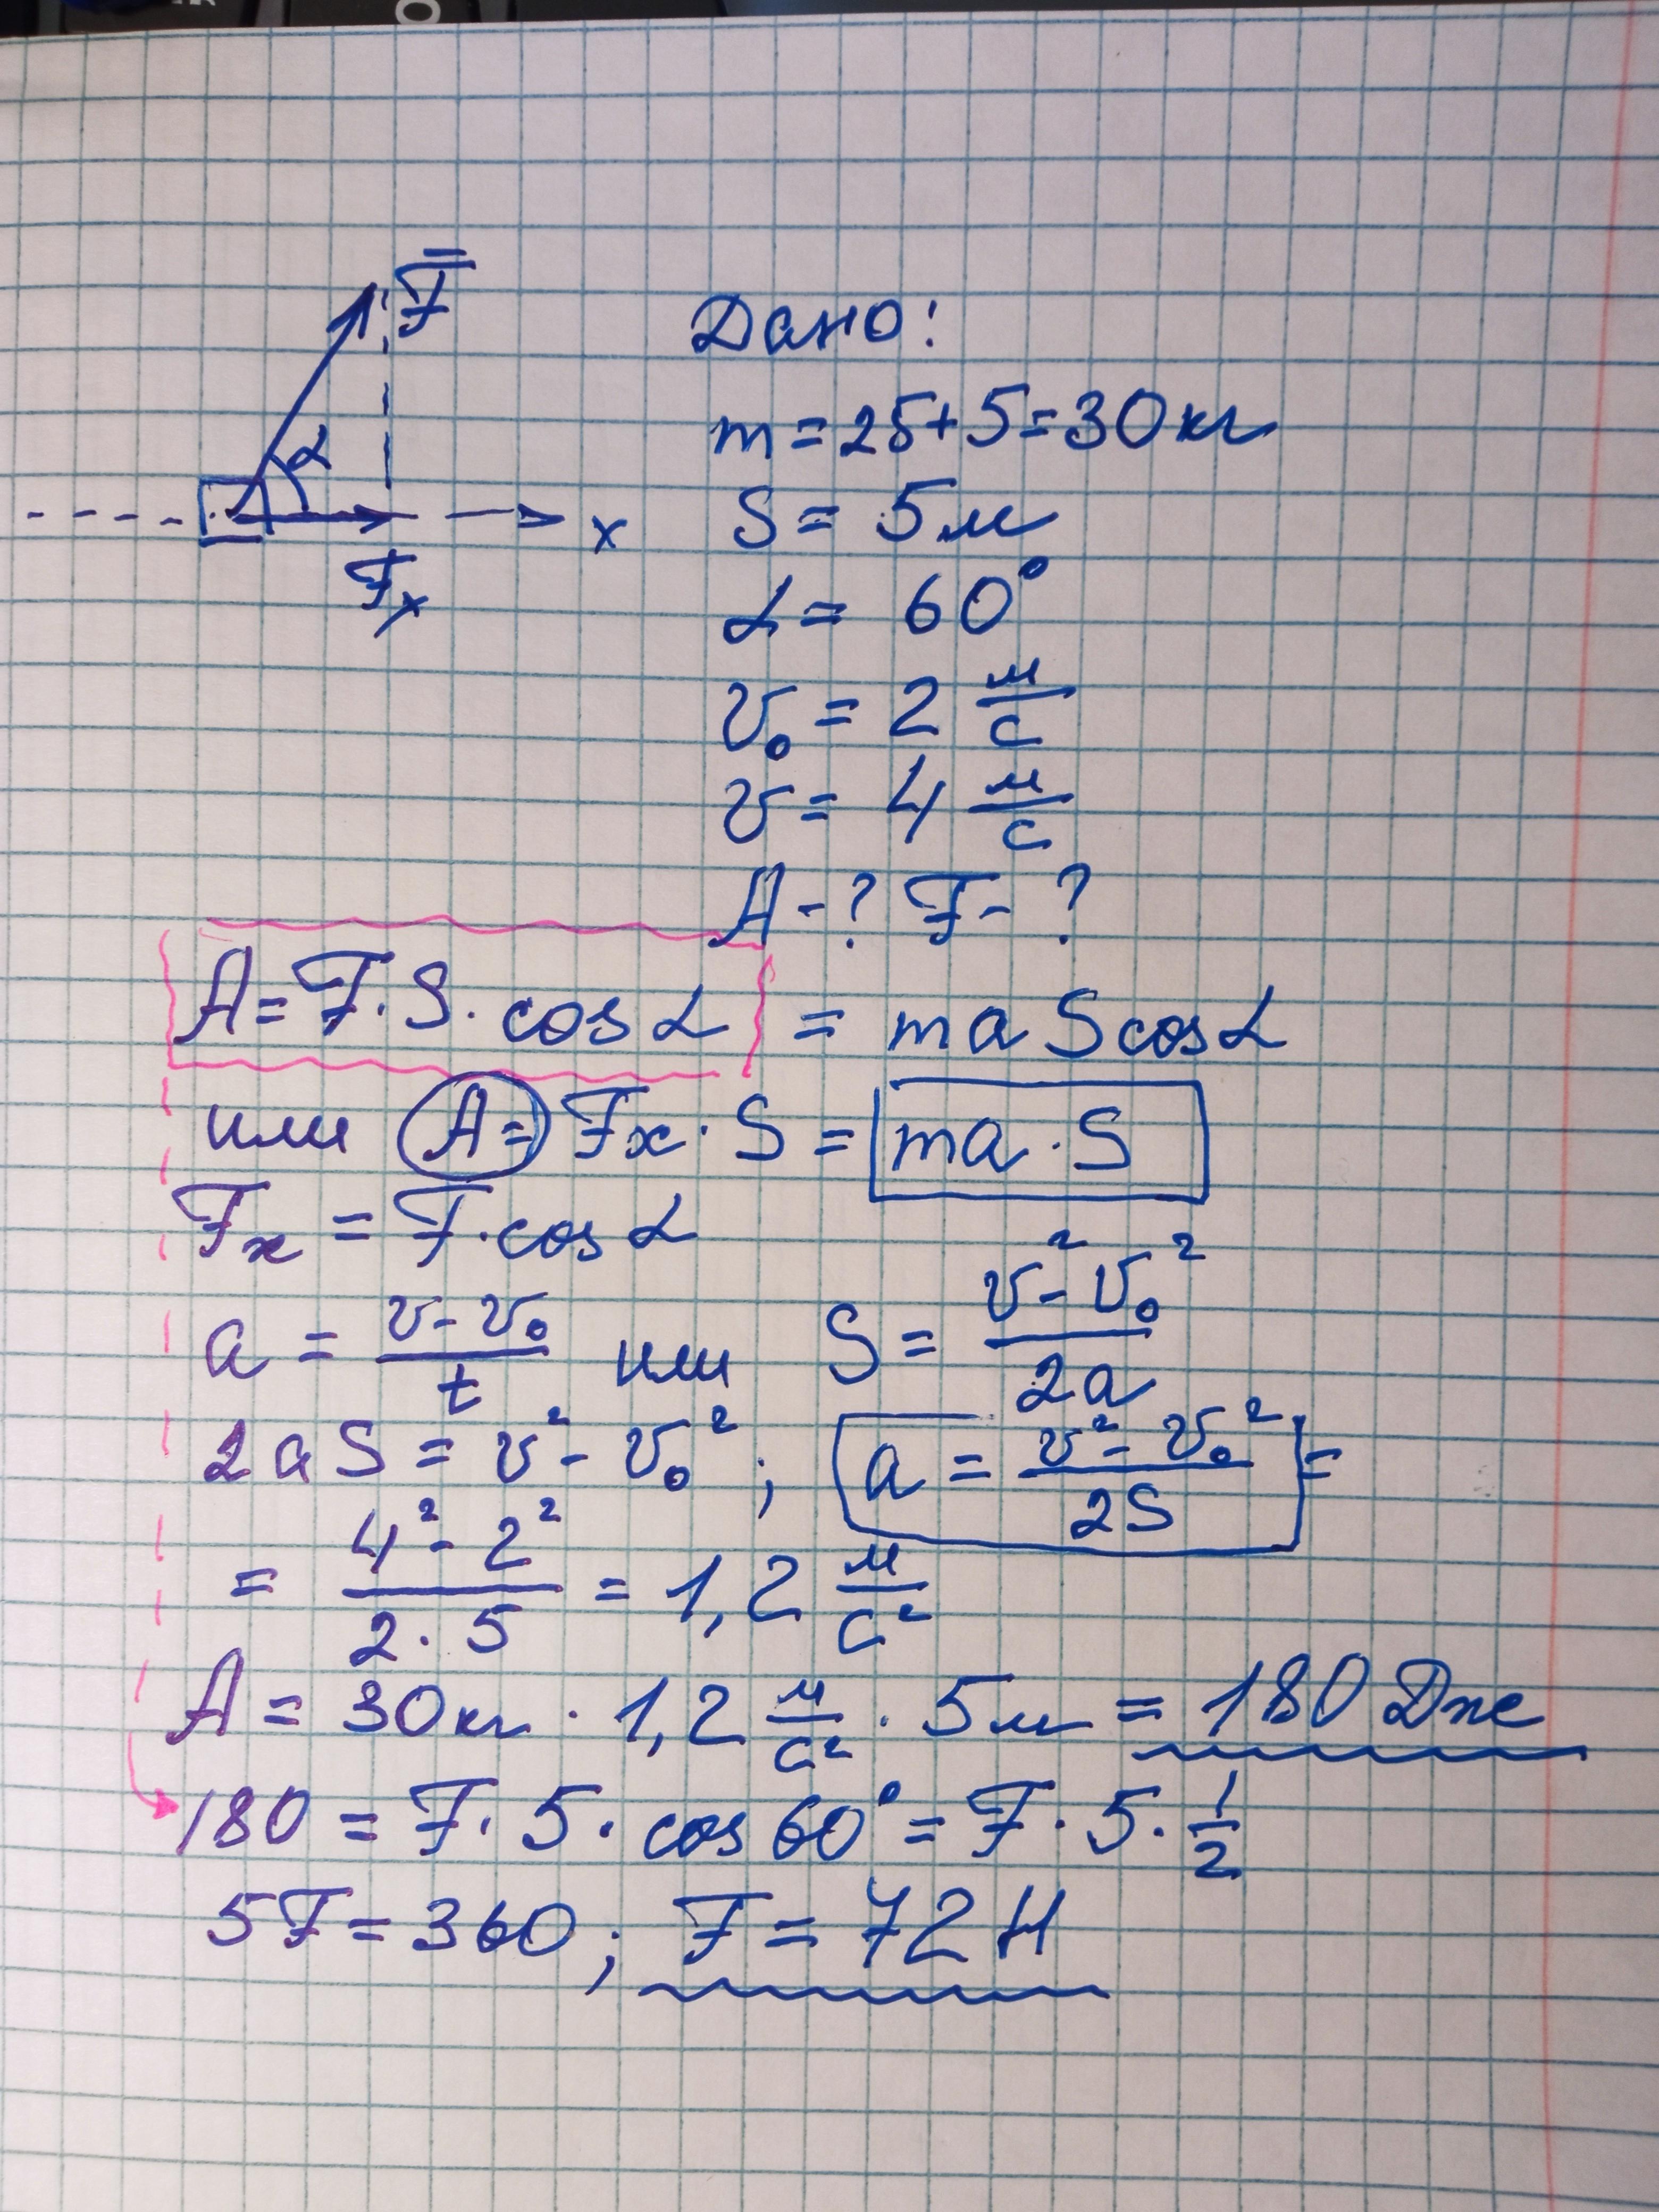 F̅
α
x
Fx
Дано:
m = 25+5 = 30 кг
S = 5 м
α = 60°
v₀ = 2 м/с
v = 4 м/с
A - ? F - ?
A = F · S · cos α = ma S cos α
или A = Fx · S = ma · S
Fx = F · cos α
a = (v - v₀)/t или S = (v² - v₀²)/2a
2aS = v² - v₀² ; a = (v² - v₀²)/2S =
= (4² - 2²)/(2 · 5) = 1,2 м/с²
A = 30 кг · 1,2 м/с² · 5 м = 180 Дж
180 = F · 5 · cos 60° = F · 5 · 1/2
5F = 360 ; F = 72 Н